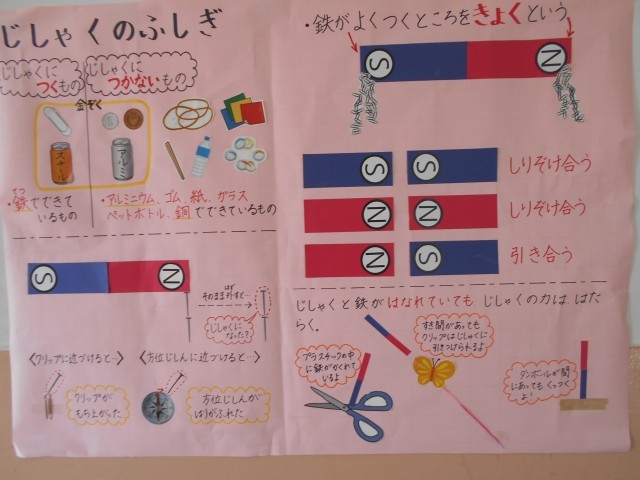 じしゃくのふしぎ
じしゃくに
つくもの
じしゃくに
つかないもの
金ぞく
スチール
アルミ
てつ
・鉄でできて
いるもの
・アルミニウム、ゴム、紙、ガラス
ペットボトル、銅でできているもの
・鉄がよくつくところをきょくという
S
N
S
S
しりぞけ合う
N
N
しりぞけ合う
N
S
引き合う
S
N
はず
そのまま外すと…
じしゃくに
なった?
〈クリップに近づけると…〉
〈方位じしんに近づけると…〉
クリップが
もち上がった
方位じしんが
はりがふれた
じしゃくと鉄がはなれていても じしゃくの力は、はた
らく。
プラスチックの中
に鉄がかくれて
いるよ
すき間があっても
クリップはじしゃくに
引きつけられるよ
ダンボールが間
にあってもくっつく
よ!